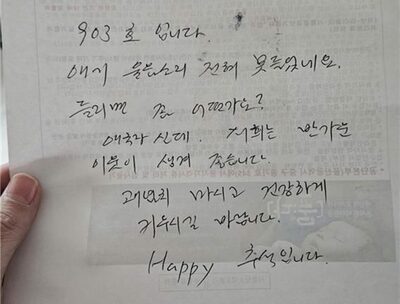 903 호 입니다.
애기 울음소리 전혀 못들었네요.
들리면 좀 어떤가요?
애국자 신데. 저희는 반가운
이웃이 생겨 좋습니다.
괘념치 마시고 건강하게
키우시길 바랍니다.
Happy 추석입니다.